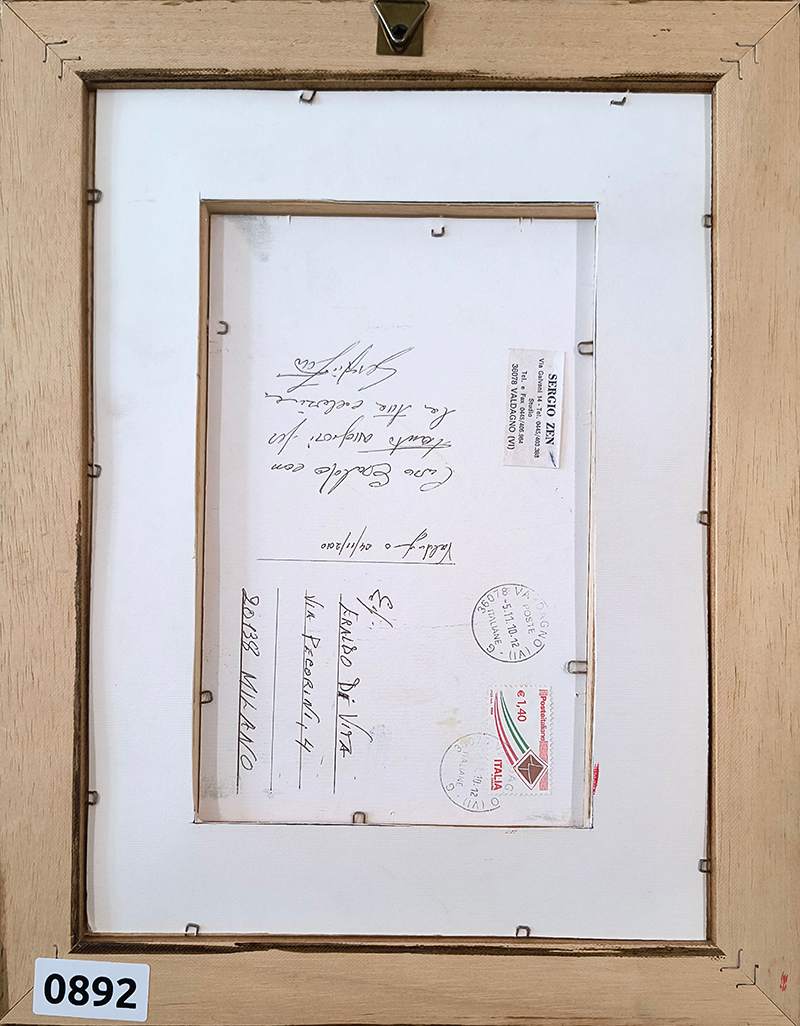 SERGIO ZEN
Via Galvani 14 - Tel. 0445/402.388
Studio
Tel. e Fax 0445/406.984
36078 VALDAGNO (VI)
Valdagno 04/11/2010
Caro Eraldo con
tanti auguri per
la tua collezione
Sergio Zen
Posteitaliane
€ 1,40
ITALIA
POSTE
-5.11.10-12
ITALIANE
ERALDO DI VITA
VIA PECORINI, 4
20138 MILANO
0892